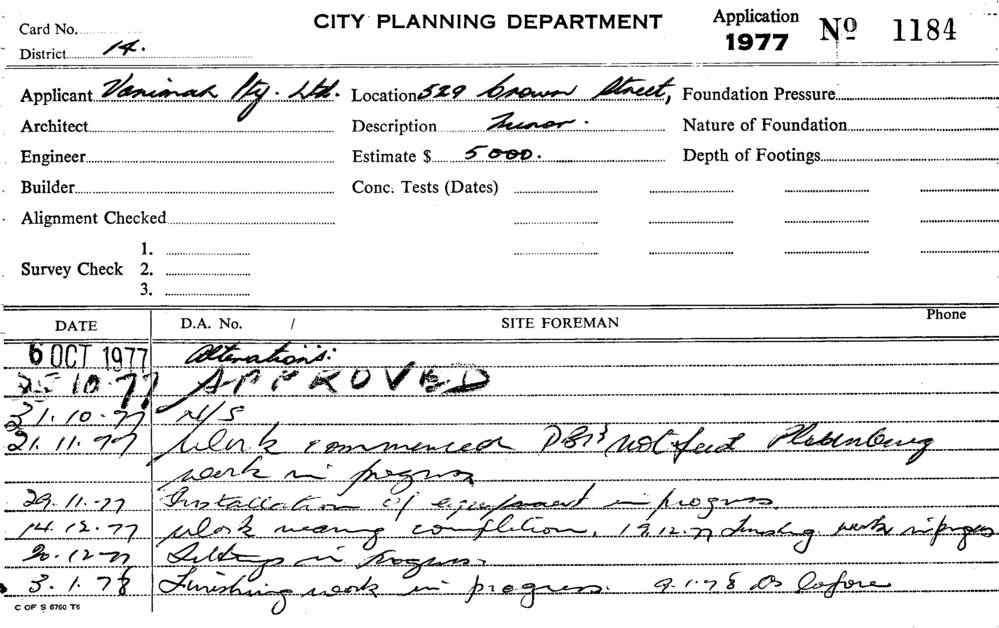 CITY PLANNING DEPARTMENT
Application 1977 Nº 1184
Card No.
District 14.
Applicant Vanimak Pty. Ltd. Location 529 Crown Street, Foundation Pressure
Architect Description Minor. Nature of Foundation
Engineer Estimate $ 5000. Depth of Footings
Builder Conc. Tests (Dates)
Alignment Checked
Survey Check 1. 2. 3.
DATE D.A. No. / SITE FOREMAN Phone
6 OCT 1977 Alterations:
25 10.77 APPROVED
31.10.77 N/S
21.11.77 Work commenced not
work in progress
29.11.77 Installation of equipment in progress.
14.12.77 Work nearing completion. 19.12.77 Finishing work in progress
20.12.77 in progress.
3.1.78 Finishing work in progress. 9.1.78 As before
C OF S 6760 T6